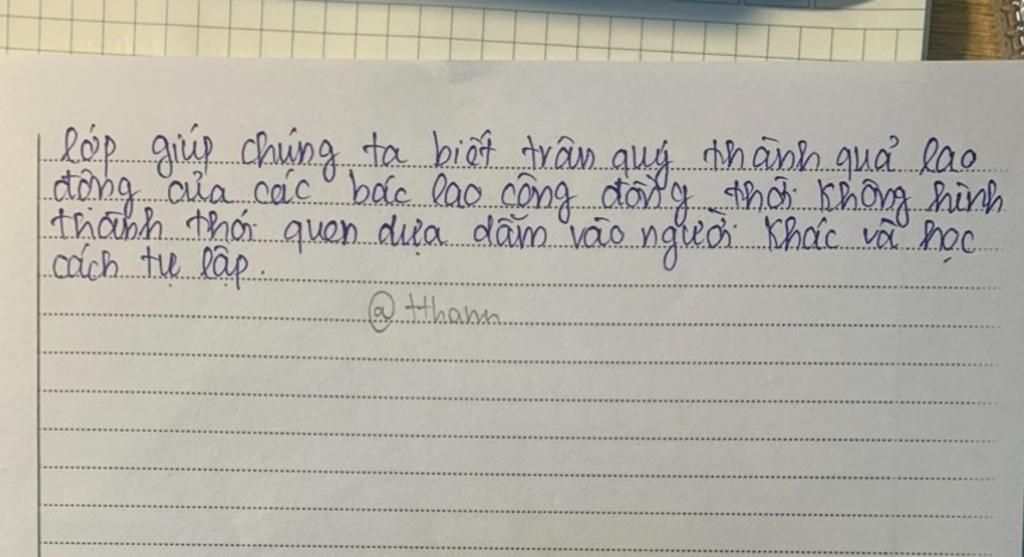 lớp giúp chúng ta biết trân quý thành quả lao
động của các bác lao công đồng thời không hình
thành thói quen dựa dẫm vào người khác và học
cách tự lập.
@tthanh